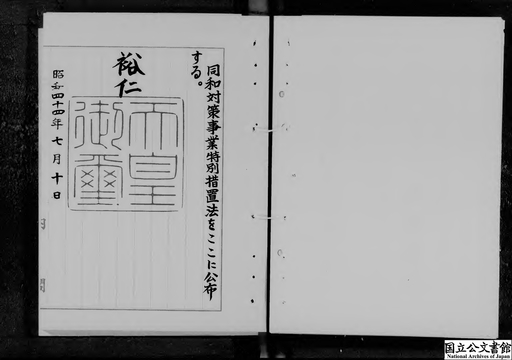 同和対策事業特別措置法をここに公布
する。
裕仁
天皇
御璽
昭和四十四年七月十日
国立公文書館
National Archives of Japan